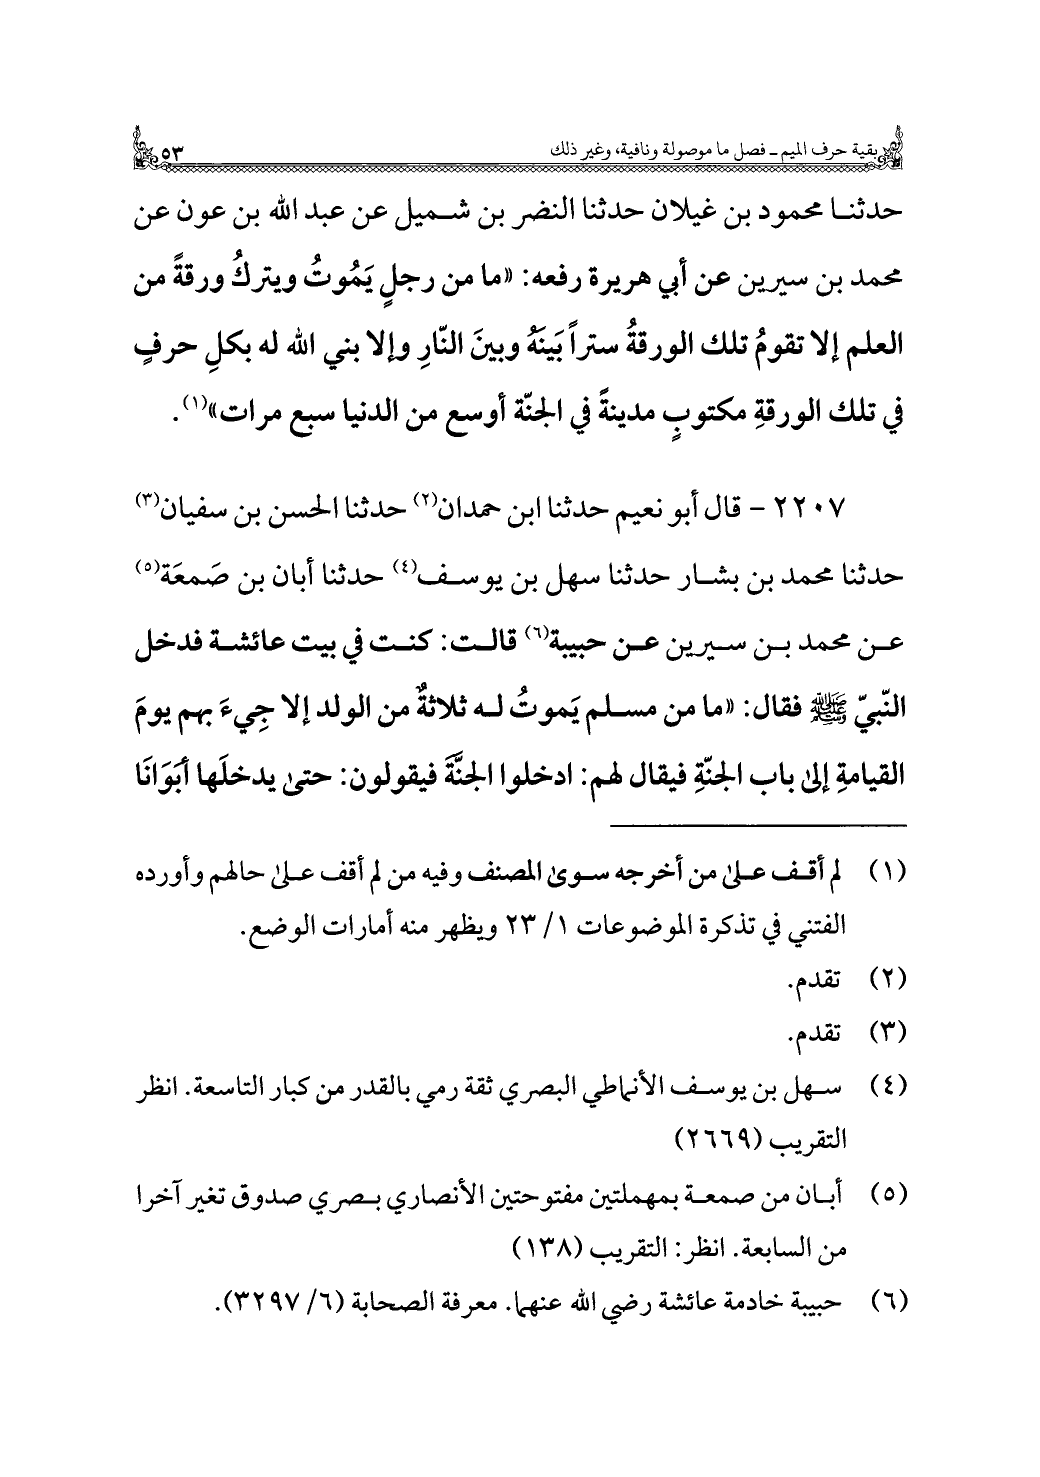 بقية حرف الميم ـ فصل ما موصولة ونافية، وغير ذلك ٥٣
حدثنا محمود بن غيلان حدثنا النضر بن شميل عن عبد الله بن عون عن
محمد بن سيرين عن أبي هريرة رفعه: «ما من رجلٍ يَمُوتُ ويتركُ ورقةً من
العلم إلا تقومُ تلك الورقةُ ستراً بَينَهُ وبينَ النّارِ وإلا بني الله له بكلِ حرفٍ
في تلك الورقةِ مكتوبٍ مدينةً في الجنّة أوسع من الدنيا سبع مرات»(١).
٢٢٠٧ - قال أبو نعيم حدثنا ابن حمدان(٢) حدثنا الحسن بن سفيان(٣)
حدثنا محمد بن بشار حدثنا سهل بن يوسف(٤) حدثنا أبان بن صَمعَة(٥)
عن محمد بن سيرين عن حبيبة(٦) قالت: كنت في بيت عائشة فدخل
النّبيّ ﷺ فقال: «ما من مسلم يَموتُ له ثلاثةٌ من الولد إلا جِيءَ بهم يومَ
القيامةِ إلى باب الجنّةِ فيقال لهم: ادخلوا الجنَّةَ فيقولون: حتى يدخلَها أبَوَانَا
(١) لم أقف على من أخرجه سوى المصنف وفيه من لم أقف على حالهم وأورده
الفتني في تذكرة الموضوعات ١/ ٢٣ ويظهر منه أمارات الوضع.
(٢) تقدم.
(٣) تقدم.
(٤) سهل بن يوسف الأنماطي البصري ثقة رمي بالقدر من كبار التاسعة. انظر
التقريب (٢٦٦٩)
(٥) أبان من صمعة بمهملتين مفتوحتين الأنصاري بصري صدوق تغير آخرا
من السابعة. انظر: التقريب (١٣٨)
(٦) حبيبة خادمة عائشة رضي الله عنهما. معرفة الصحابة (٦/ ٣٢٩٧).